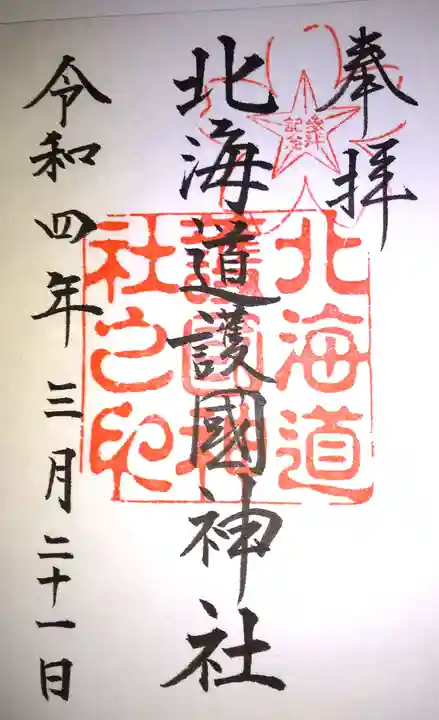 奉拝
参拝記念
北海道護國神社
北海道護國神社之印
令和四年三月二十一日